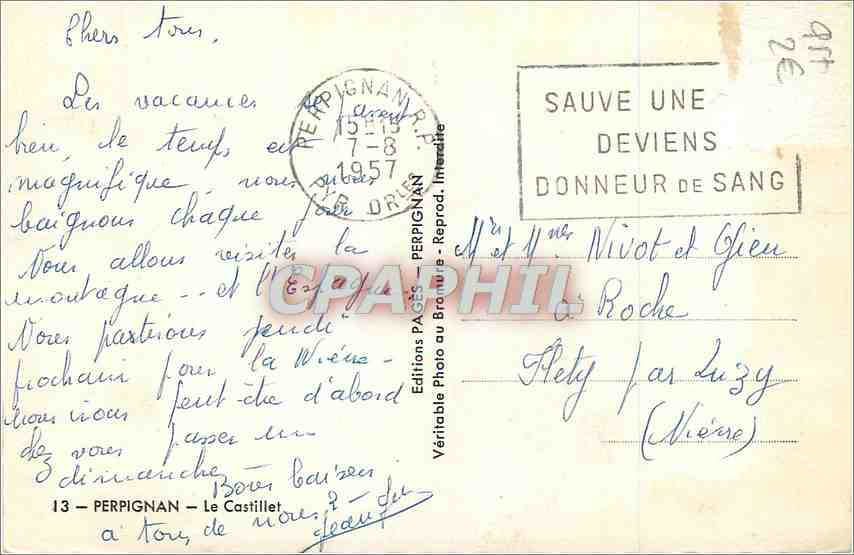 Chers tous,
Les vacances se passent
bien, le temps est
magnifique, nous nous
baignons chaque jour
Nous allons visiter la
montagne - - et l'Espagne
Nous partirons jeudi
prochain pour la Nièvre -
nous irons peut-être d'abord
chez vous passer un
dimanche Bons baisers
13 — PERPIGNAN — Le Castillet
à tous de nous 2 -
PERPIGNAN R.P.
15H15
7-8
1957
PYR. ORLES
SAUVE UNE
DEVIENS
DONNEUR DE SANG
Editions PAGÈS — PERPIGNAN
Véritable Photo au Bromure - Reprod. Interdite
Mrs et Mmes Nivot et Gien
à Roche
Flety par Luzy
(Nièvre)
2€
CPAPHIL